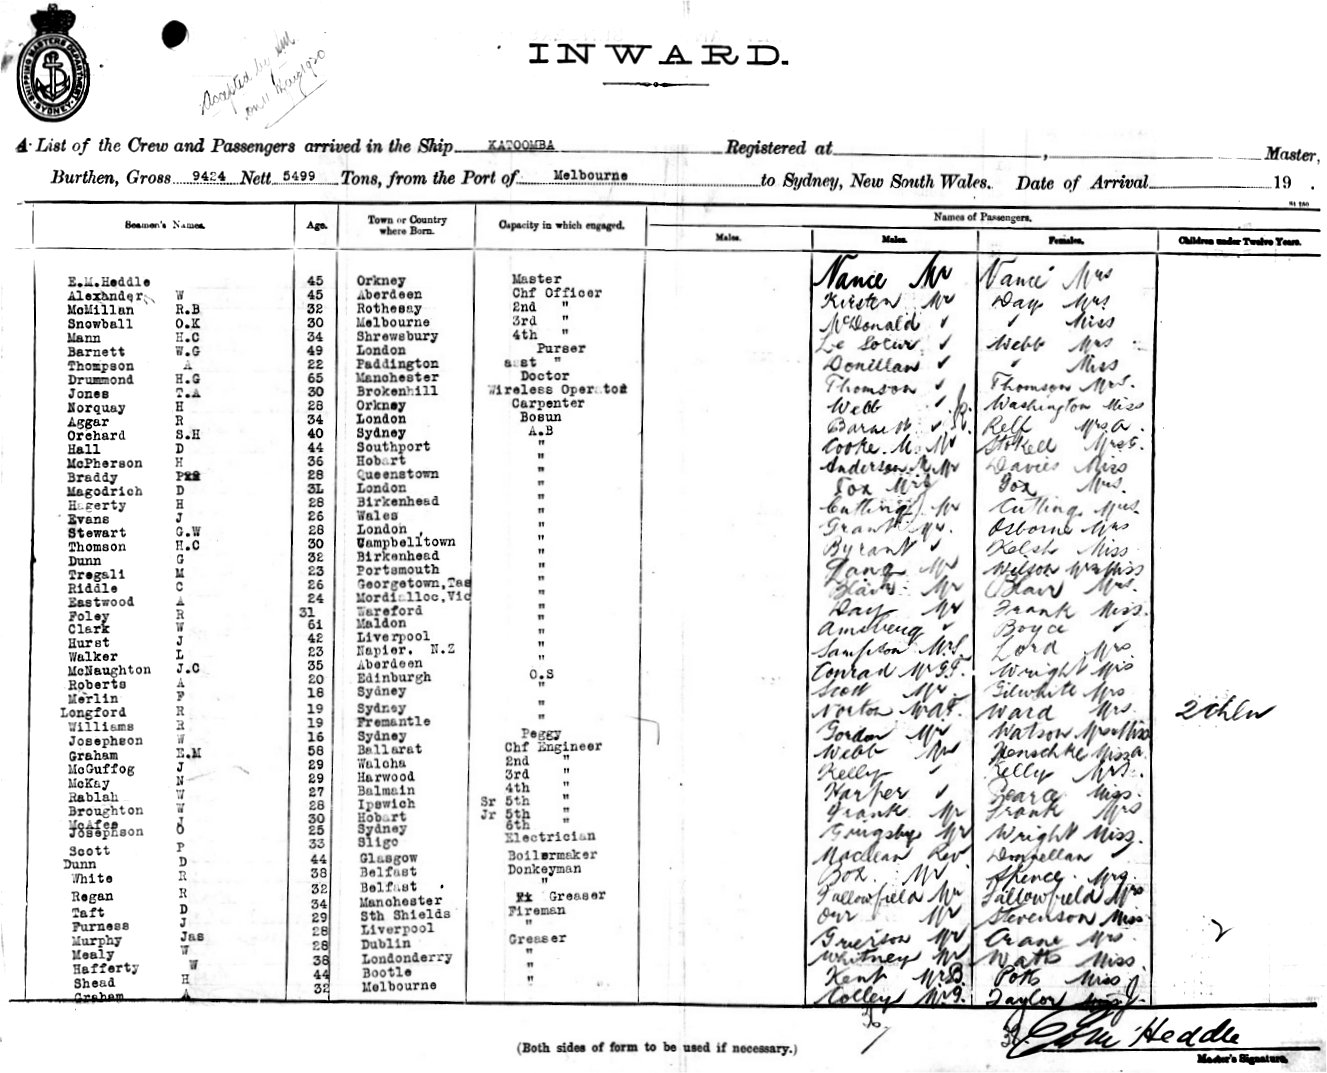 SHIPPING MASTERS DEPARTMENT SYDNEY
Accepted by
INWARD.
A List of the Crew and Passengers arrived in the Ship KATOOMBA Registered at , Master,
Burthen, Gross 9424 Nett 5499 Tons, from the Port of Melbourne to Sydney, New South Wales. Date of Arrival 19 .
Names of Passengers.
Seamen's Names. Age. Town or Country where Born. Capacity in which engaged. Males. Males. Females. Children under Twelve Years.
E.M.Heddle 45 Orkney Master Nance Mr Nance Mrs
Alexander W 45 Aberdeen Chf Officer Kirsten Mr Day Mrs
McMillan R.B 32 Rothesay 2nd " McDonald " Miss
Snowball O.K 30 Melbourne 3rd " Webb Mrs
Mann H.C 34 Shrewsbury 4th " Donillan " Miss
Barnett W.G 49 London Purser Thomson Thomson Mrs.
Thompson A 22 Paddington asst " Webb Washington Miss
Drummond H.G 65 Manchester Doctor Relf Mrs A.
Jones T.A 30 Brokenhill Wireless Operator Cooke Mr Stokell Mrs
Norquay H 28 Orkney Carpenter Anderson Mr Davies Miss
Aggar R 34 London Bosun Fox Mrs Fox Mrs.
Orchard S.H 40 Sydney A.B Cutting Mr Cutting Mrs
Hall D 44 Southport " Grant Mr. Osborne Mrs
McPherson H 36 Hobart " Byrant Kelsh Miss
Braddy P 28 Queenstown " Lang Mr Wilson Miss
Magodrich D 3L London " Blair Mr Blair Mrs.
Hagerty H 28 Birkenhead " Day Mr Frank Miss.
Evans J 26 Wales " Amsberg Boyce
Stewart G.W 28 London " Sampson Mrs Lord Mrs
Thomson H.C 30 Campbelltown " Conrad Mr Wright Mrs
Dunn G 32 Birkenhead " Scott Mr Gilwhite Mrs
Tregali M 23 Portsmouth " Norton Ward Mrs. 2 Chln
Riddle C 26 Georgetown,Tas " Gordon Mr Watson Mrs & Miss
Eastwood A 24 Mordialloc,Vic " Webb Mr Henschke Miss A
Foley R 31 Wareford " Kelly Kelly Mrs.
Clark W 61 Maldon " Harper Pearce Miss.
Hurst J 42 Liverpool " Frank Mr Frank Mrs
Walker L 23 Napier. N.Z " Grigsby Mr Wright Miss.
McNaughton J.C 35 Aberdeen Maclean Rev. Donnellan
Roberts A 20 Edinburgh O.S Box Mr Spence Mrs.
Merlin F 18 Sydney " Fallowfield Mr Fallowfield Mrs
Longford R 19 Sydney " Orr Mr Stevenson Miss
Williams R 19 Fremantle " Grierson Mr Crane Mrs. 2
Josephson W 16 Sydney Peggy Whitney Mr Watts Miss
Graham E.M 58 Ballarat Chf Engineer Kent Mr B. Potts Miss J
McGuffog J 29 Walcha 2nd " Colley Mr Taylor
McKay N 29 Harwood 3rd "
Rablah W 27 Balmain 4th "
Broughton W 28 Ipswich Sr 5th "
McAfee J 30 Hobart Jr 5th "
Josephson O 25 Sydney 6th "
Scott P 33 Sligo Electrician
Dunn D 44 Glasgow Boilermaker
White R 38 Belfast Donkeyman
Regan R 32 Belfast "
Taft D 34 Manchester Greaser
Furness J 29 Sth Shields Fireman
Murphy Jas 28 Liverpool "
Mealy W 28 Dublin Greaser
Hafferty W 38 Londonderry "
Shead H 44 Bootle "
Graham A 32 Melbourne "
Heddle
Master's Signature.
(Both sides of form to be used if necessary.)